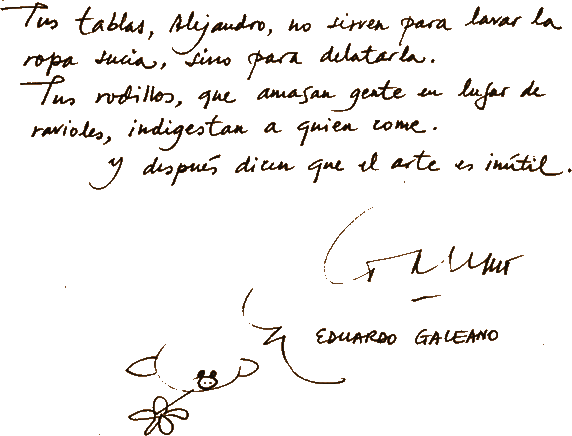 Tus tablas, Alejandro, no sirven para lavar la
ropa sucia, sino para delatarla.
Tus rodillos, que amasan gente en lugar de
ravioles, indigestan a quien come.
Y después dicen que el arte es inútil.
EDUARDO GALEANO